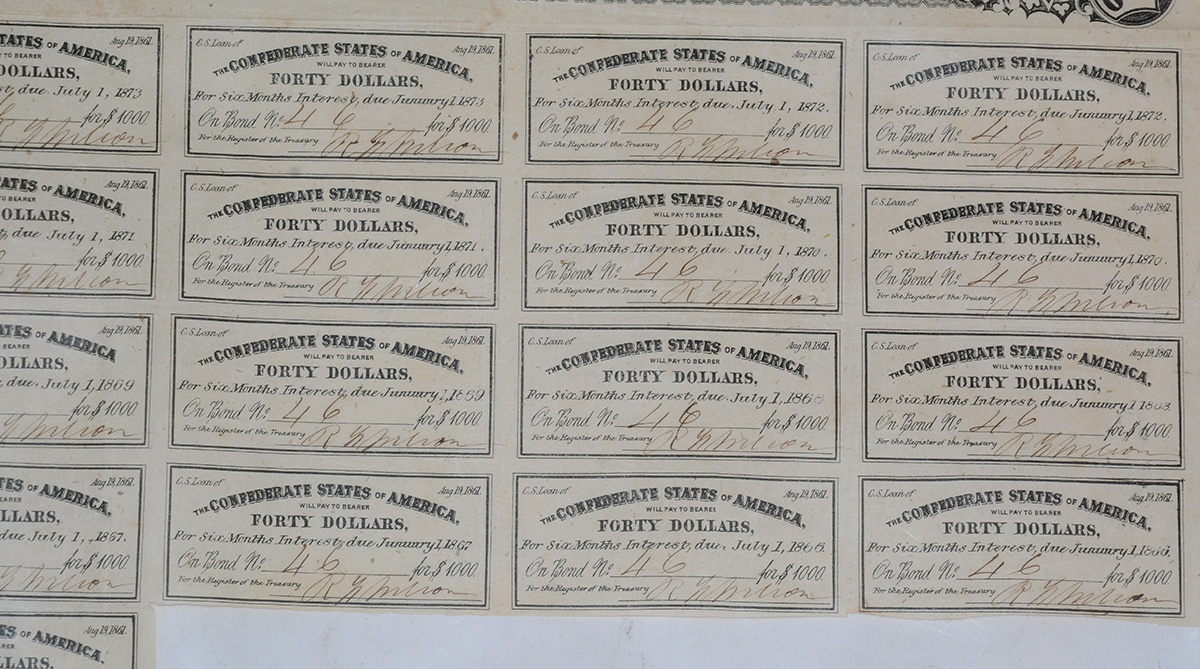 TATES OF AMERICA, Aug 19, 1861.
TO BEARER
DOLLARS,
st due July 1, 1873
for $ 1000
R G Wilson
C.S. Loan of Aug 19, 1861.
THE CONFEDERATE STATES OF AMERICA,
WILL PAY TO BEARER
FORTY DOLLARS,
For Six Months Interest, due January 1, 1873
On Bond No. 46 for $ 1000
For the Register of the Treasury R G Wilson
C.S. Loan of Aug 19, 1861.
THE CONFEDERATE STATES OF AMERICA,
WILL PAY TO BEARER
FORTY DOLLARS,
For Six Months Interest, due July 1, 1872.
On Bond No. 46 for $ 1000.
For the Register of the Treasury R G Wilson
C.S. Loan of Aug 19, 1861.
THE CONFEDERATE STATES OF AMERICA,
WILL PAY TO BEARER
FORTY DOLLARS,
For Six Months Interest, due January 1, 1872.
On Bond No. 46 for $ 1000.
For the Register of the Treasury R G Wilson
TATES OF AMERICA, Aug 19, 1861.
TO BEARER
DOLLARS,
st, due July 1, 1871
for $ 1000.
R G Wilson
C.S. Loan of Aug 19, 1861.
THE CONFEDERATE STATES OF AMERICA,
WILL PAY TO BEARER
FORTY DOLLARS,
For Six Months Interest, due January 1, 1871.
On Bond No. 46 for $ 1000.
For the Register of the Treasury R G Wilson
C.S. Loan of Aug 19, 1861.
THE CONFEDERATE STATES OF AMERICA,
WILL PAY TO BEARER
FORTY DOLLARS,
For Six Months Interest, due July 1, 1870.
On Bond No. 46 for $ 1000.
For the Register of the Treasury R G Wilson
C.S. Loan of Aug 19, 1861.
THE CONFEDERATE STATES OF AMERICA,
WILL PAY TO BEARER
FORTY DOLLARS,
For Six Months Interest, due January 1, 1870.
On Bond No. 46 for $ 1000.
For the Register of the Treasury R G Wilson
TATES OF AMERICA Aug 19, 1861.
BEARER
OLLARS,
due July 1, 1869
for $ 1000.
G Wilson
C.S. Loan of Aug 19, 1861.
THE CONFEDERATE STATES OF AMERICA,
WILL PAY TO BEARER
FORTY DOLLARS,
For Six Months Interest, due January 1, 1869
On Bond No. 46 for $ 1000.
For the Register of the Treasury R G Wilson
C.S. Loan of Aug 19, 1861.
THE CONFEDERATE STATES OF AMERICA,
WILL PAY TO BEARER
FORTY DOLLARS,
For Six Months Interest, due July 1, 1868
On Bond No. 46 for $ 1000.
For the Register of the Treasury R G Wilson
C.S. Loan of Aug 19, 1861.
THE CONFEDERATE STATES OF AMERICA,
WILL PAY TO BEARER
FORTY DOLLARS,
For Six Months Interest, due January 1 1868.
On Bond No. 46 for $ 1000.
For the Register of the Treasury R G Wilson
TES OF AMERICA, Aug 19, 1861.
EARER
LLARS,
due July 1, 1867.
for $ 1000.
G Wilson
C.S. Loan of Aug 19, 1861.
THE CONFEDERATE STATES OF AMERICA,
WILL PAY TO BEARER
FORTY DOLLARS,
For Six Months Interest, due January 1, 1867
On Bond No. 46 for $ 1000.
For the Register of the Treasury R G Wilson
C.S. Loan of Aug 19, 1861.
THE CONFEDERATE STATES OF AMERICA,
WILL PAY TO BEARER
FORTY DOLLARS,
For Six Months Interest, due July 1, 1866.
On Bond No. 46 for $ 1000.
For the Register of the Treasury R G Wilson
C.S. Loan of Aug 19, 1861.
THE CONFEDERATE STATES OF AMERICA,
WILL PAY TO BEARER
FORTY DOLLARS,
For Six Months Interest, due January 1, 1866.
On Bond No. 46 for $ 1000.
For the Register of the Treasury R G Wilson
ES OF AMERICA, Aug 19, 1861.
RER
LARS.